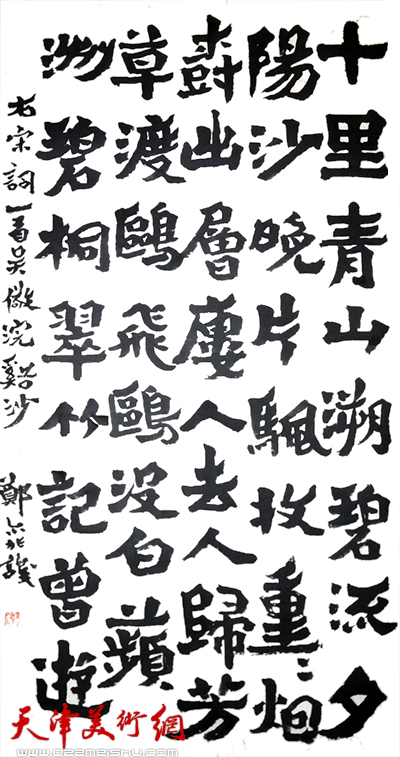 十里青山溯碧流夕
陽沙晚片颿收重〻烟
樹出層樓人去人歸芳
草渡鷗飛鷗沒白蘋
洲碧桐翠竹記曾遊
右宋詞一首吳儆浣谿沙 鄭
天津美術網
www.022meishu.com